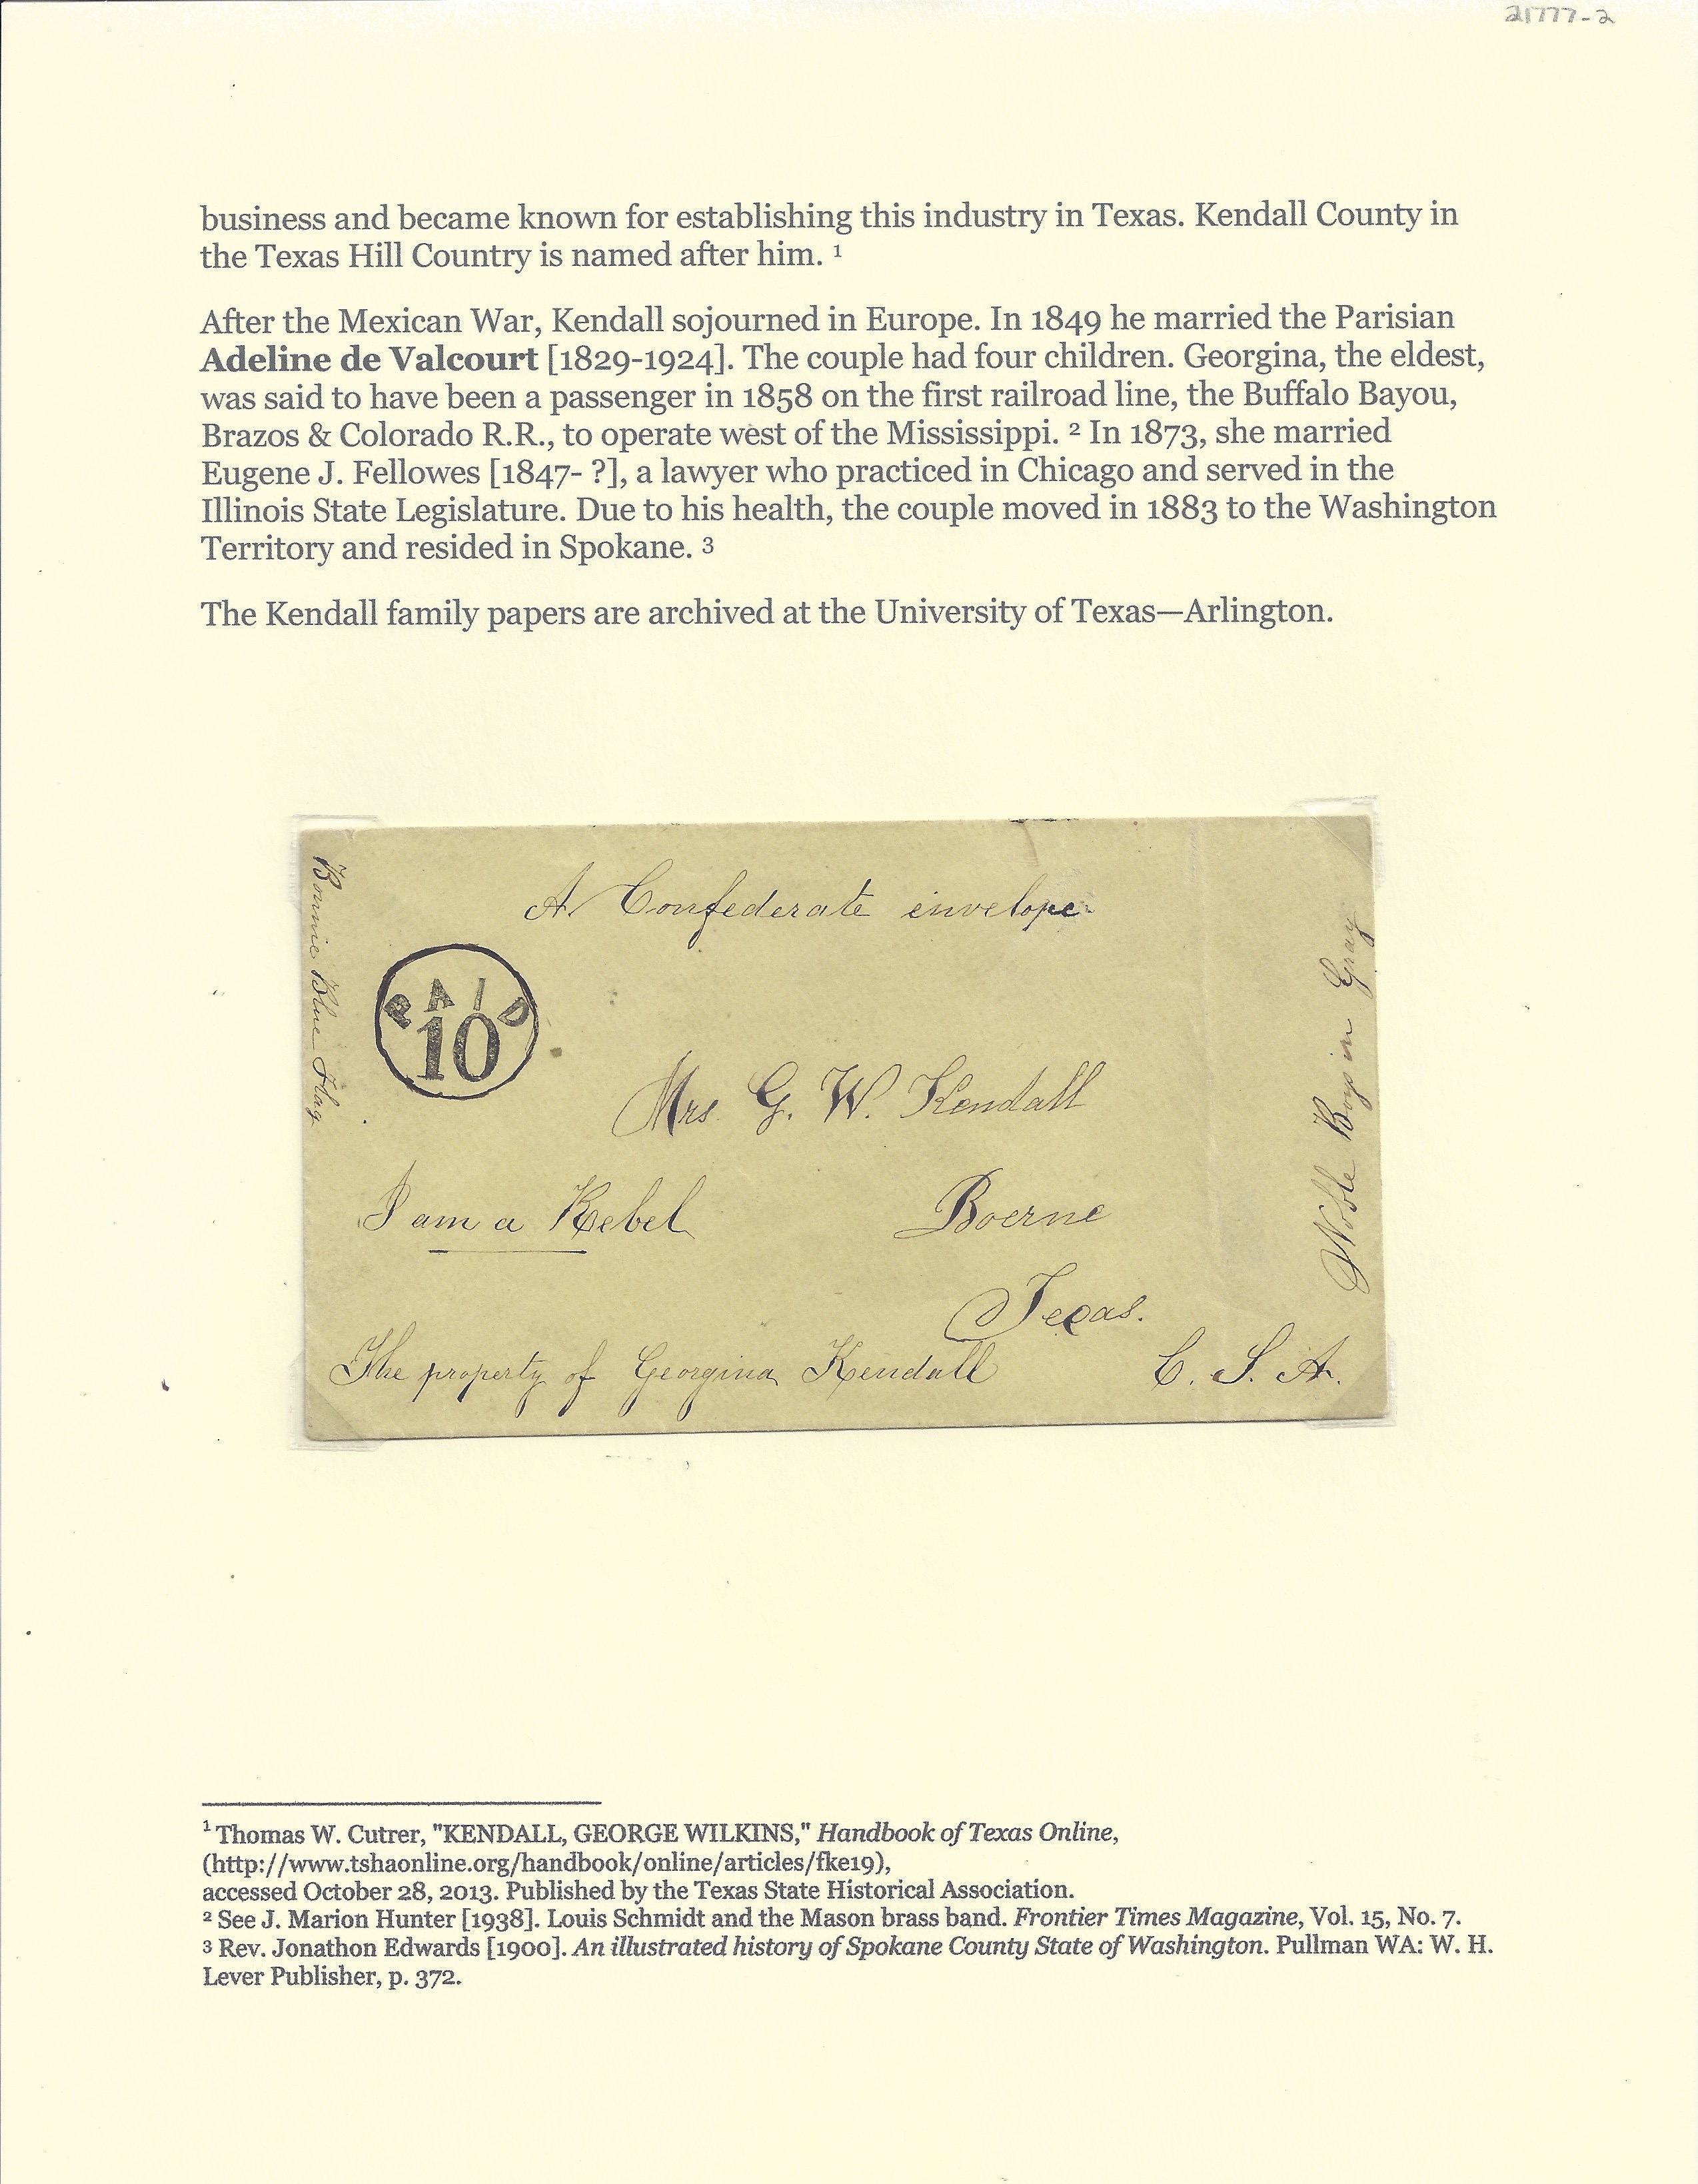 21777-2
business and became known for establishing this industry in Texas. Kendall County in
the Texas Hill Country is named after him. ¹
After the Mexican War, Kendall sojourned in Europe. In 1849 he married the Parisian
Adeline de Valcourt [1829-1924]. The couple had four children. Georgina, the eldest,
was said to have been a passenger in 1858 on the first railroad line, the Buffalo Bayou,
Brazos & Colorado R.R., to operate west of the Mississippi. ² In 1873, she married
Eugene J. Fellowes [1847- ?], a lawyer who practiced in Chicago and served in the
Illinois State Legislature. Due to his health, the couple moved in 1883 to the Washington
Territory and resided in Spokane. ³
The Kendall family papers are archived at the University of Texas—Arlington.
A Confederate envelope
Bonnie Blue Flag
PAID
10
Noble Boys in Gray
Mrs. G. W. Kendall
I am a Rebel
Boerne
Texas.
The property of Georgina Kendall
C. S. A.
¹ Thomas W. Cutrer, "KENDALL, GEORGE WILKINS," Handbook of Texas Online,
(http://www.tshaonline.org/handbook/online/articles/fke19),
accessed October 28, 2013. Published by the Texas State Historical Association.
² See J. Marion Hunter [1938]. Louis Schmidt and the Mason brass band. Frontier Times Magazine, Vol. 15, No. 7.
³ Rev. Jonathon Edwards [1900]. An illustrated history of Spokane County State of Washington. Pullman WA: W. H.
Lever Publisher, p. 372.